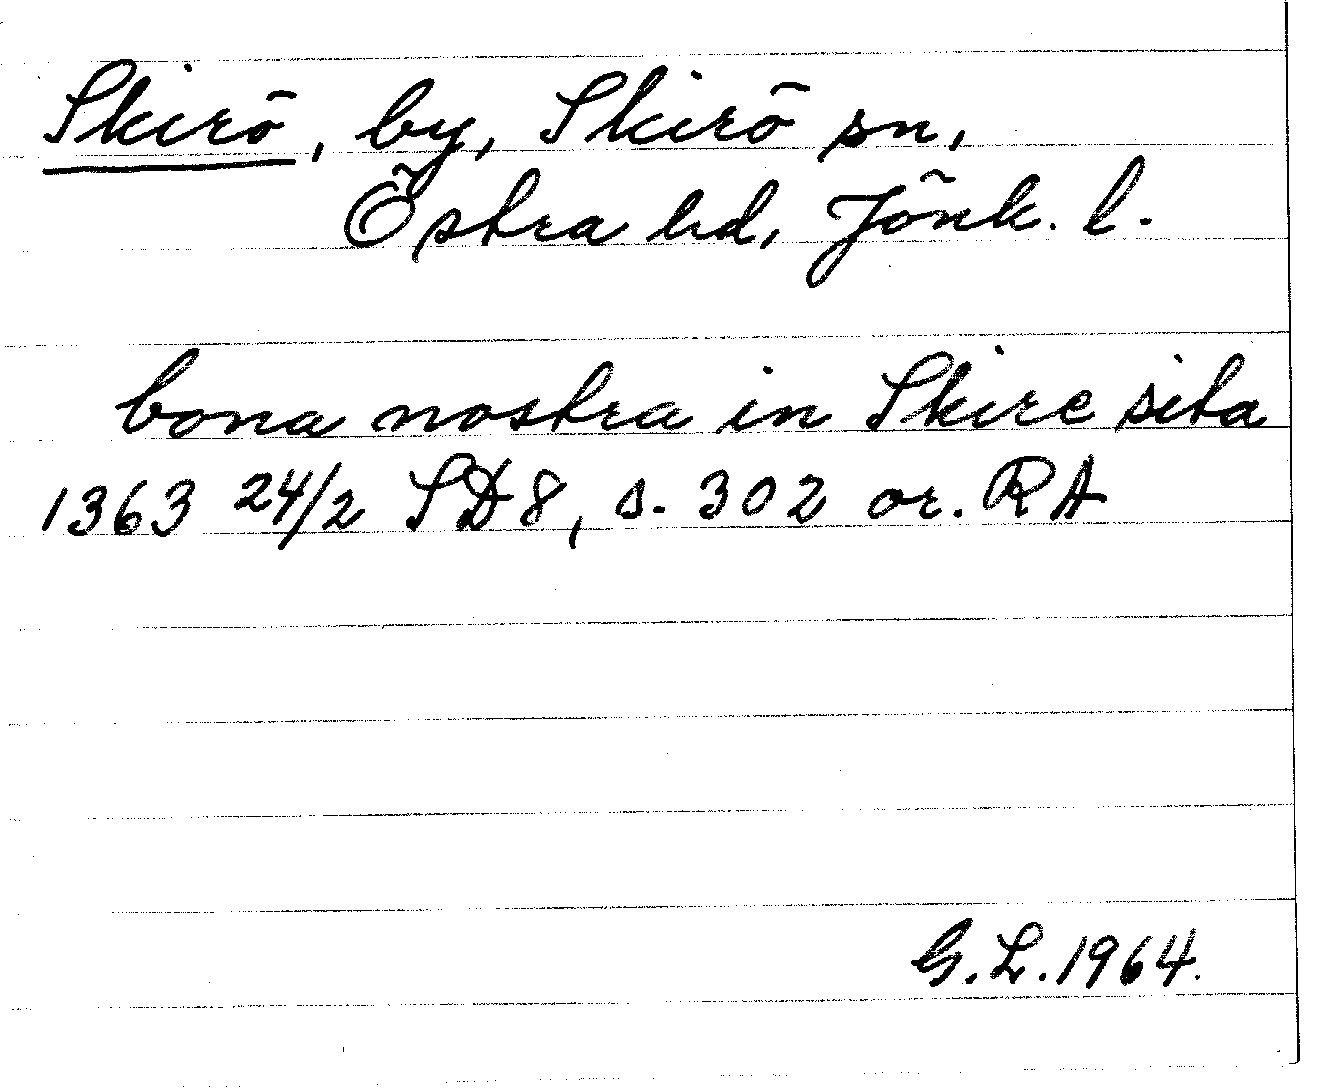 Skirö, by, Skirö sn,
Östra hd, Jönk. l.
bona nostra in Skire sita
1363 24/2 SD 8, s. 302 or. RA
G.L. 1964.